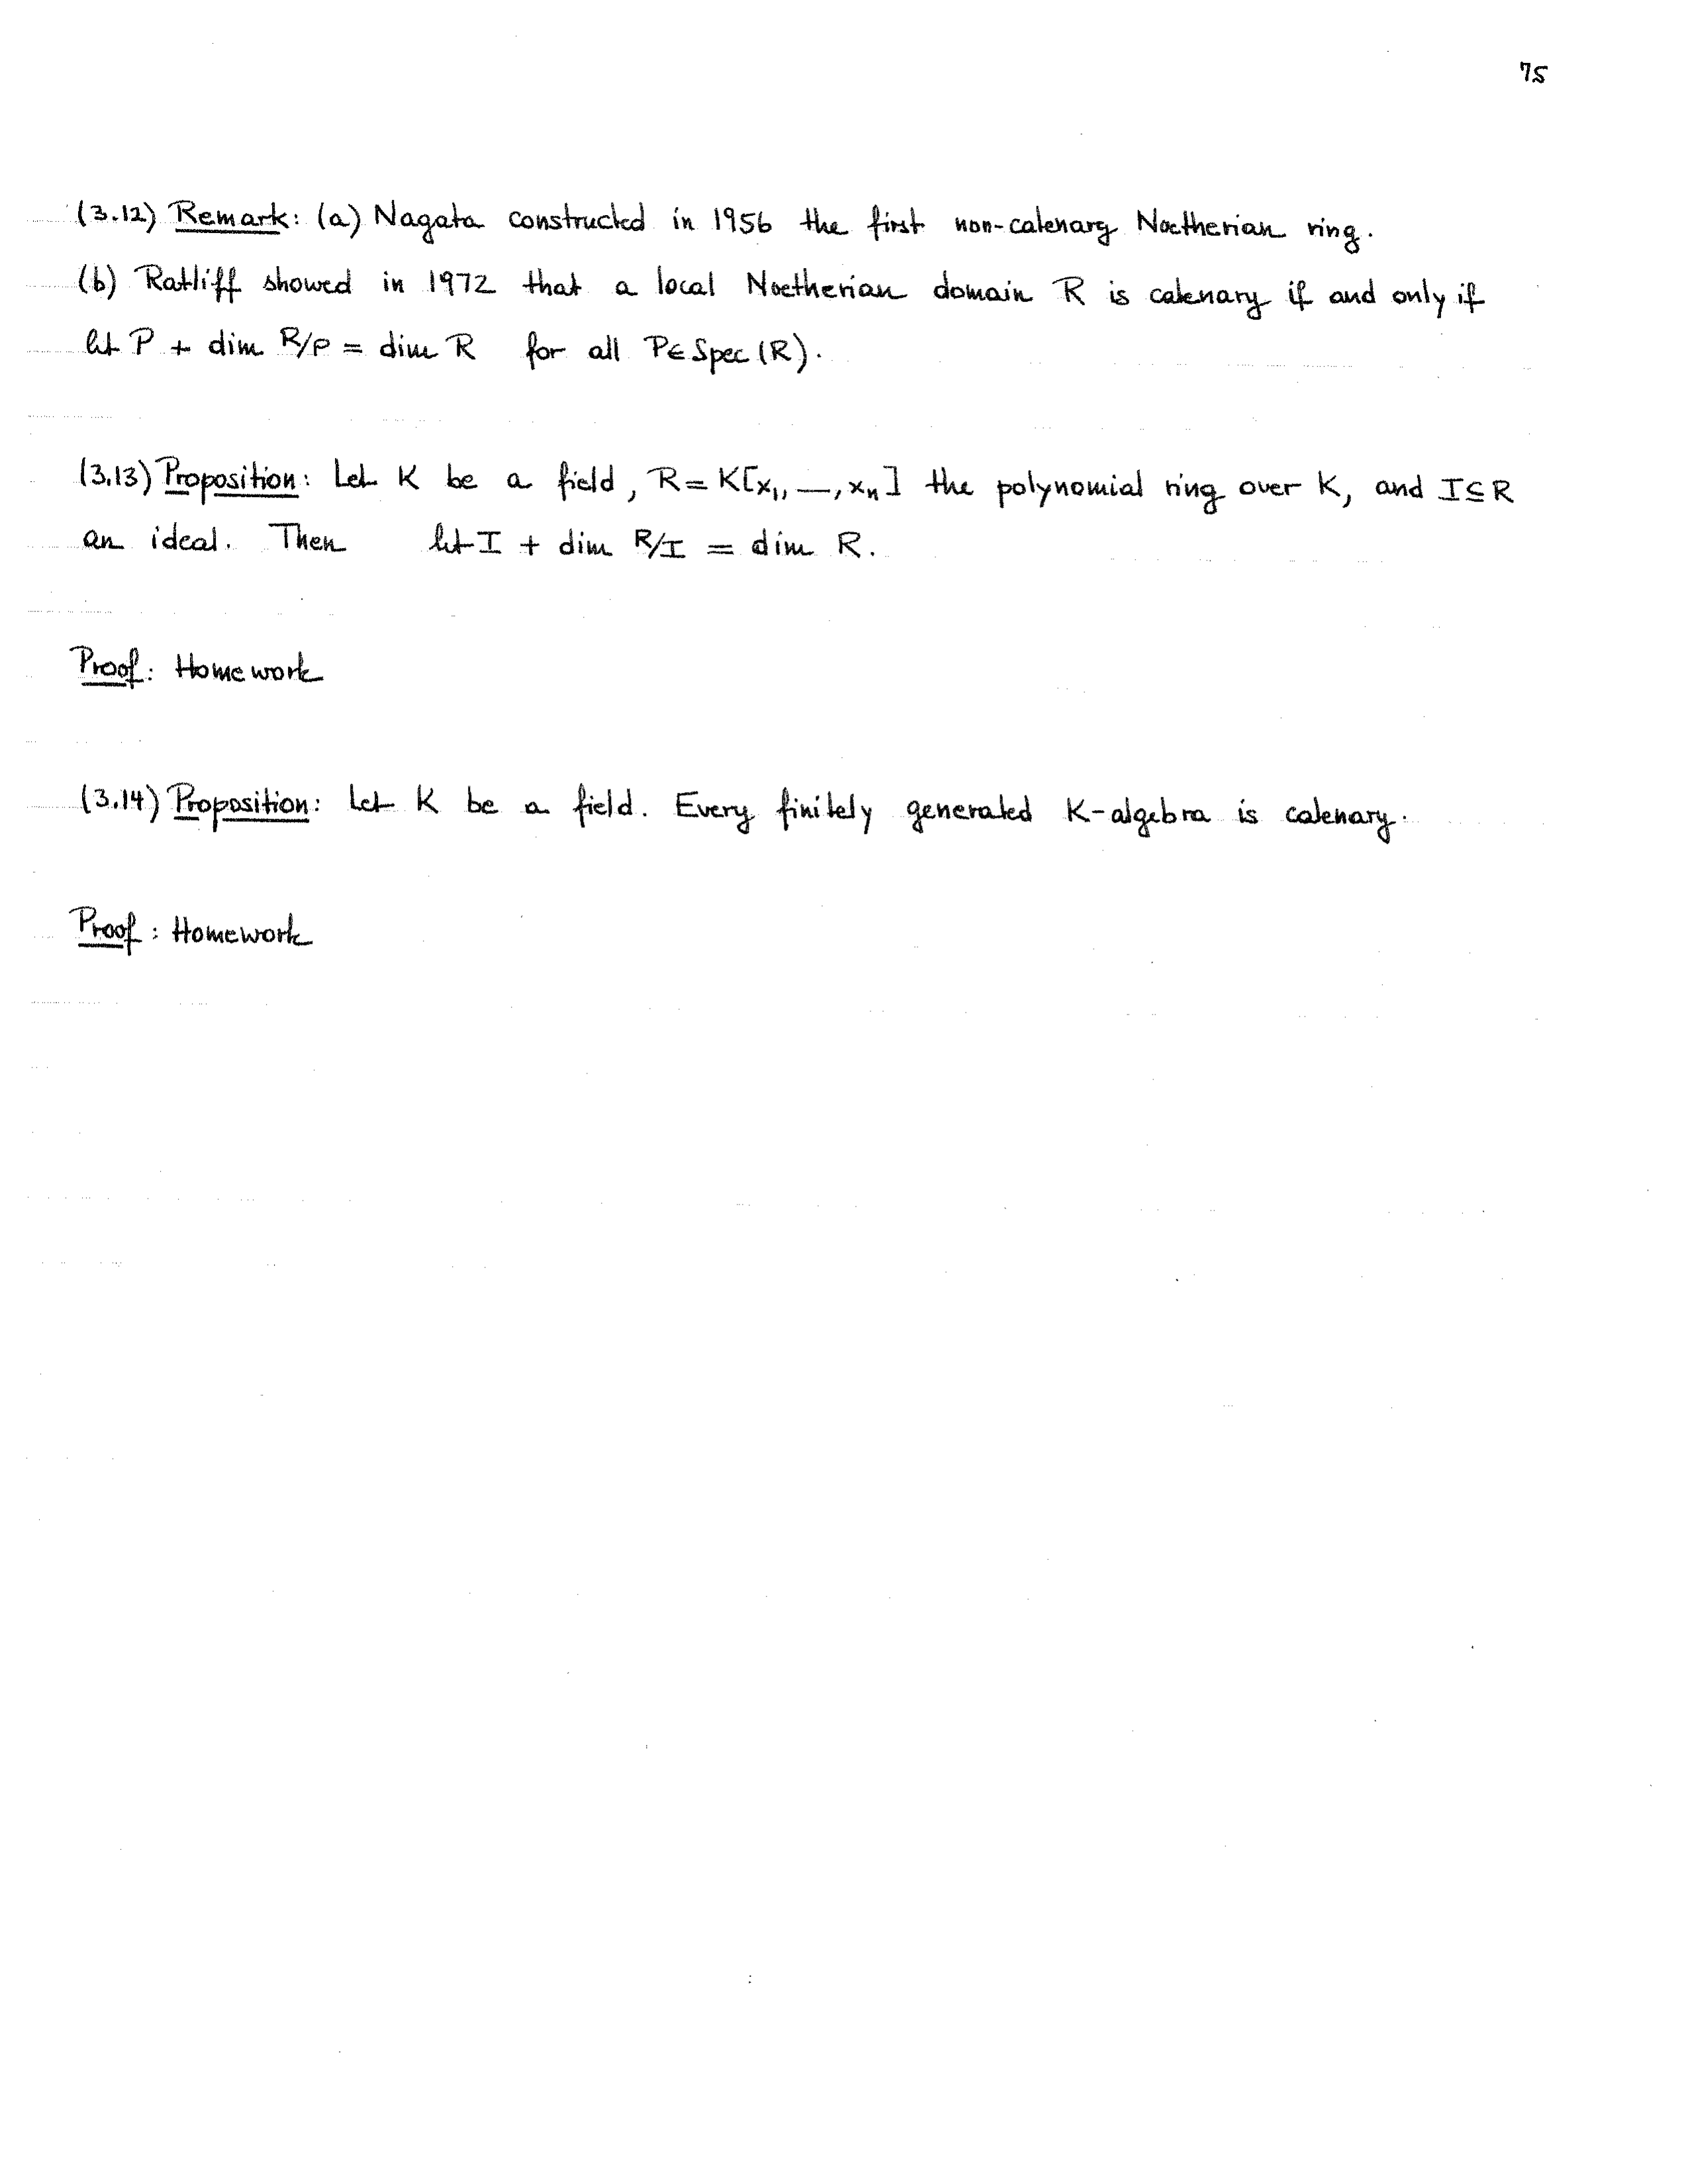 75
(3.12) Remark: (a) Nagata constructed in 1956 the first non-catenary Noetherian ring.
(b) Ratliff showed in 1972 that a local Noetherian domain R is catenary if and only if
ht P + dim R/P = dim R for all P∈Spec(R).
(3.13) Proposition: Let K be a field, R = K[x₁, —, xₙ] the polynomial ring over K, and I⊆R
an ideal. Then ht I + dim R/I = dim R.
Proof: Homework
(3.14) Proposition: Let K be a field. Every finitely generated K-algebra is catenary.
Proof: Homework